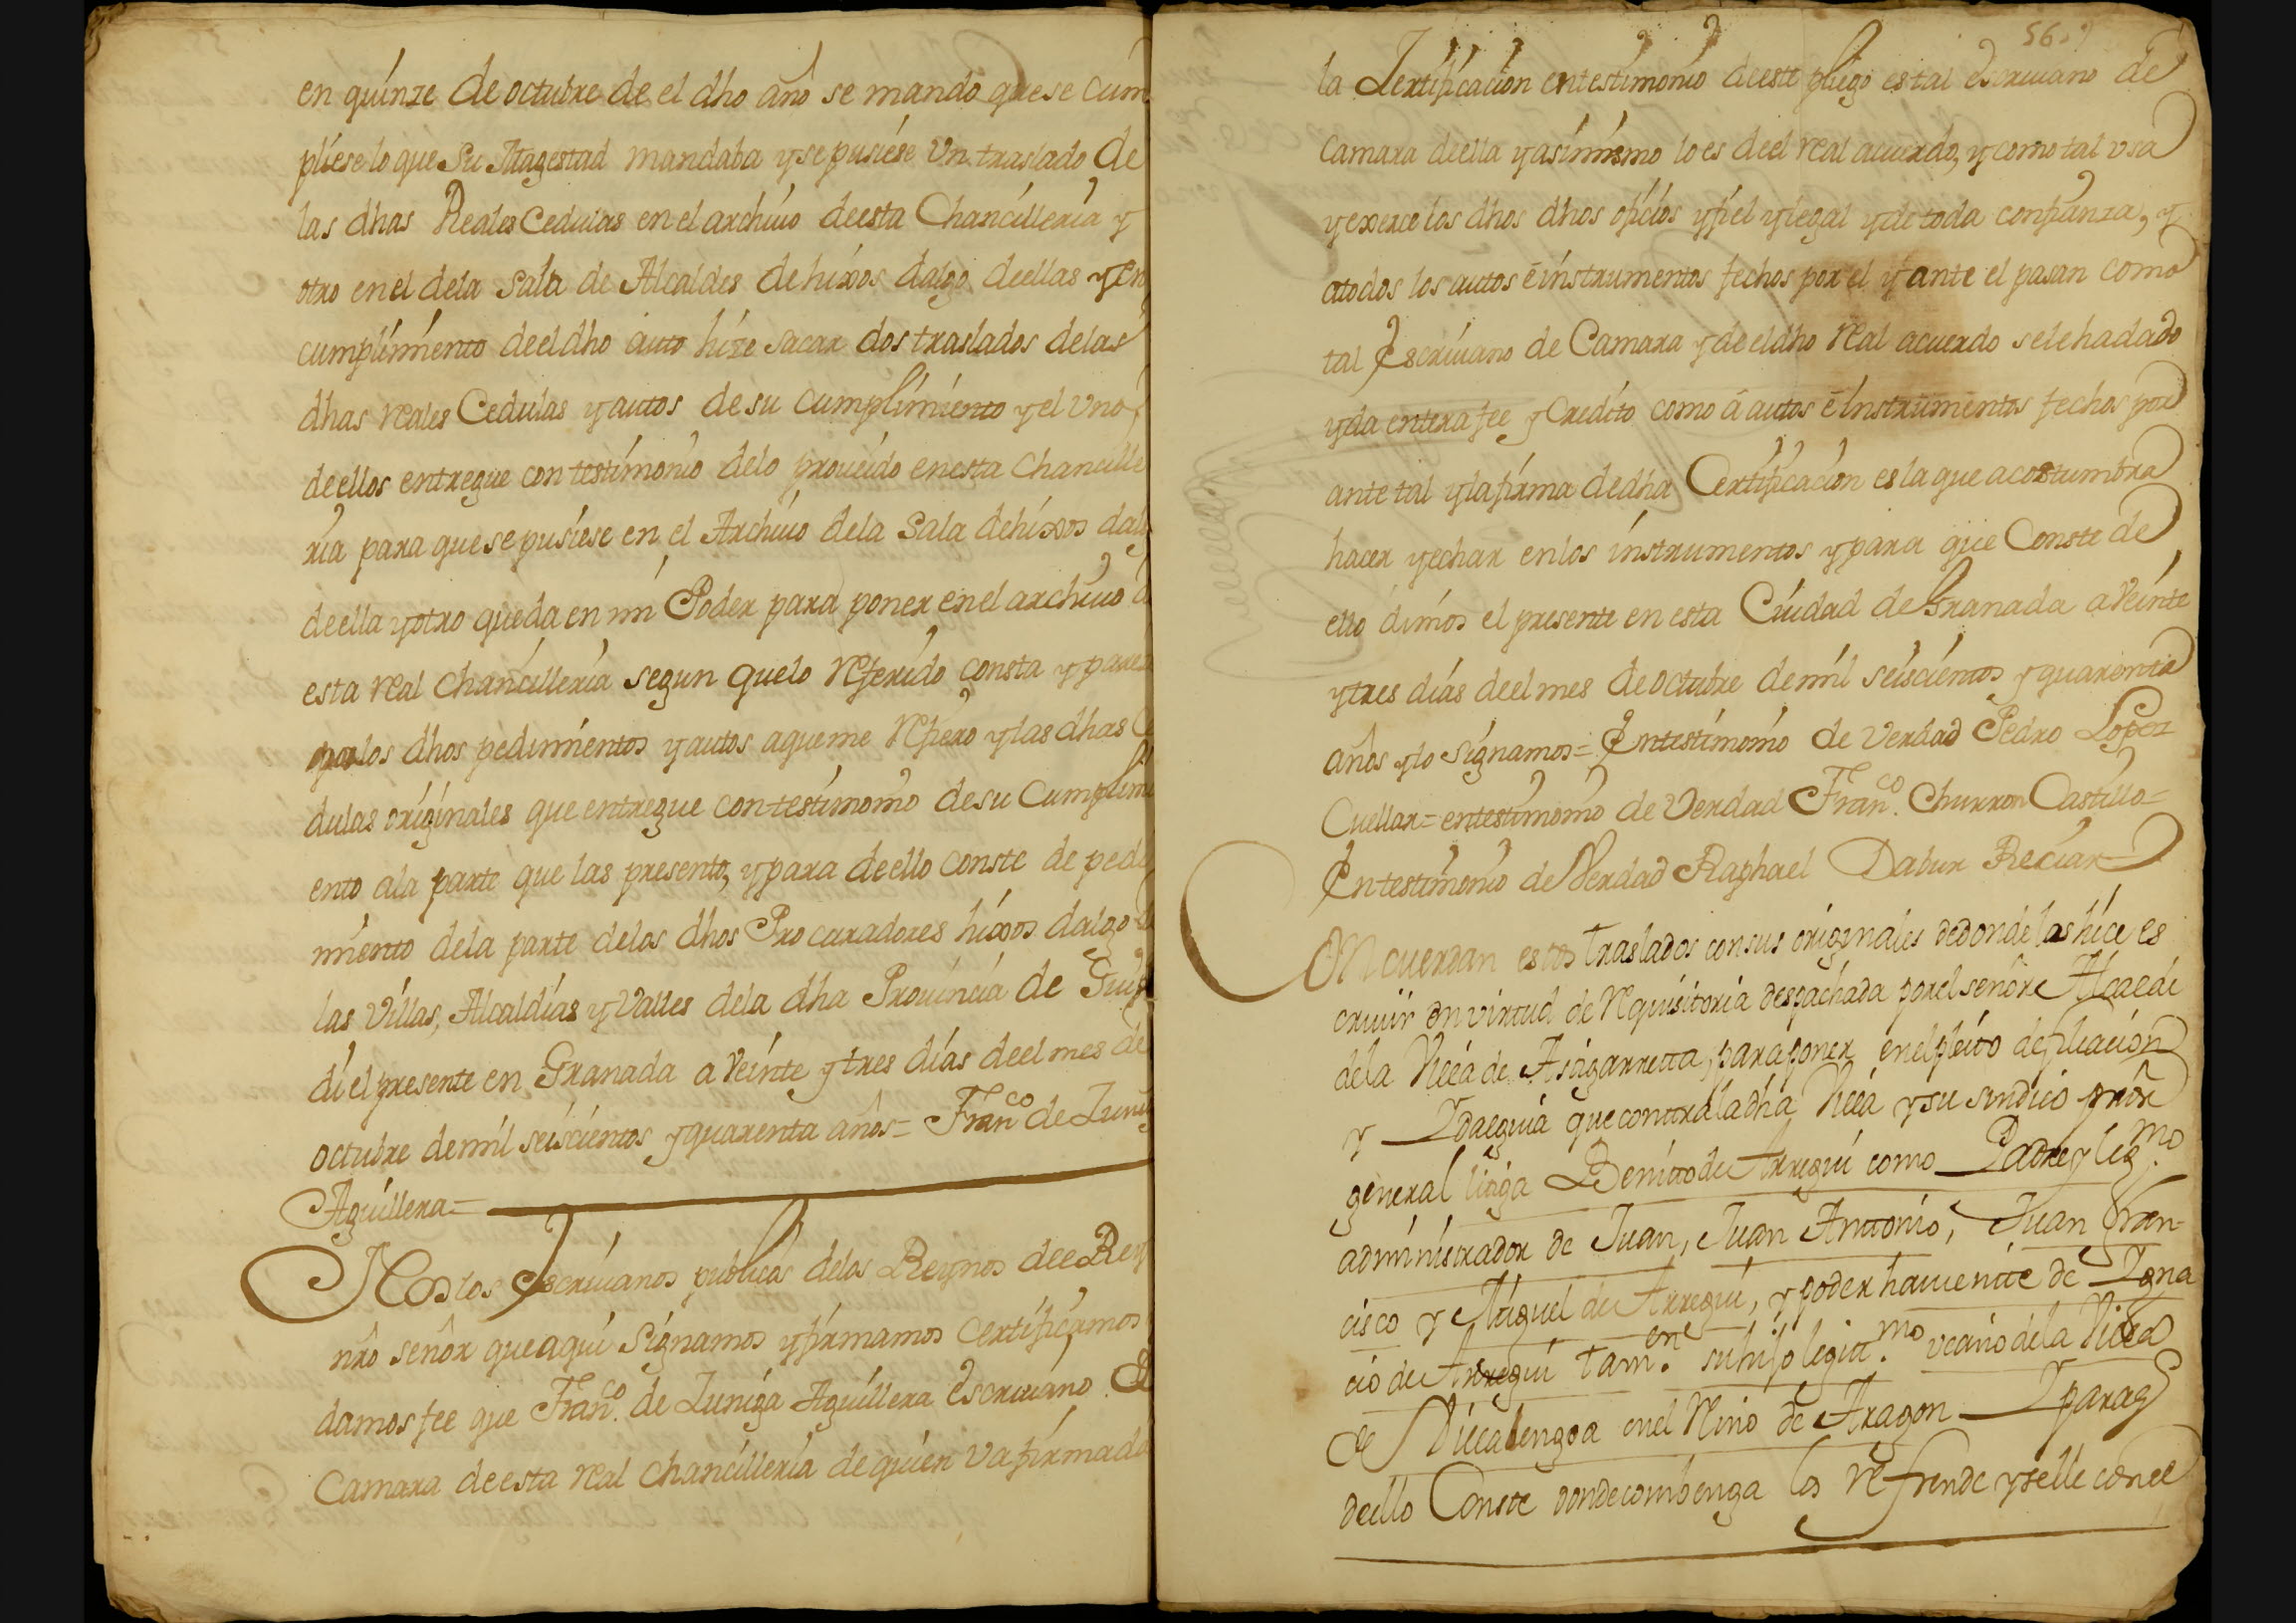 en quinze de octubre de el dho año se mando que se cum
pliese lo que Su Magestad mandaba y se pusiese Un traslado de
las dhas Reales Cedulas en el archiuo de esta Chancilleria y
otro en el de la Sala de Alcaldes de hixos dalgo de ellas y en
cumplimiento de el dho auto hize sacar dos traslados de las
dhas reales Cedulas y autos de su cumplimiento y el Uno
de ellos entregue con testimonio de lo proueido en esta Chancille
ria para que se pusiese en el Archiuo de la Sala de hixos dalg
de ella y otro queda en mi Poder para poner en el archiuo d
esta real Chancilleria segun que lo Referido consta y parez
por los dhos pedimientos y autos a que me Refiero y las dhas Ce
dulas originales que entregue con testimonio de su Cumplimi
ento a la parte que las presento, y para de ello conste de pedi
miento de la parte de los dhos Procuradores hixos dalgo d
las Villas, Alcaldias y Valles de la dha Prouincia de Guip
di el presente en Granada a Veinte y tres dias de el mes de
octubre de mil seiscientos y quarenta años = Franco de Zuñig
Aguillera =
Nos los Escriuanos publicos de los Reynos de el Rey
nro señor que aqui Signamos y firmamos Certificamos
damos fee que Franco. de Zuniga Aguillera Escriuano de
Camara de esta real Chancilleria de quien Va firmado
la Zertificacion en testimonio de este pliego es tal escriuano de
Camara de ella y asimismo lo es de el real acuerdo, y como tal usa
y exerce los dhos dhos oficios y fiel y legal y de toda confianza, y
a todos los autos e instrumentos fechos por el y ante el pasan como
tal Escriuano de Camara y de el dho real acuerdo se le ha dado
y da entera fee y Credito como á autos é Instrumentos fechos por
ante tal y la firma de dha Certificacion es la que acostumbra
hacer y echar en los instrumentos y para que Conste de
ello dimos el presente en esta Ciudad de Granada a Veinte
y tres dias de el mes de octubre de mil seiscientos y quarenta
años y lo signamos = En testimonio de Verdad Pedro Lopez
Cuellar = en testimonio de Verdad Franco. Churron Castillo =
En testimonio de Verdad Raphael Dabur Reciar =
Concuerdan estos traslados con sus originales de donde las hice es
criuir en virtud de Requisitoria despachada por el señor Alcalde
de la Villa de Asigarreta, para poner en el pleito de filiacion
y Ydalguia que contra la dha Villa y su sindico pror
general litiga Benito de Arregui como Padre y legmo
administrador de Juan, Juan Antonio, Juan Fran-
cisco y Miguel de Arregui, y poder hauiente de Igna
cio de Arregui tamene. su hijo legitmo. vecino de la Villa
de Villalengoa en el Rino de Aragon Y para q
de ello Conste donde combenga los refrende y selle con el